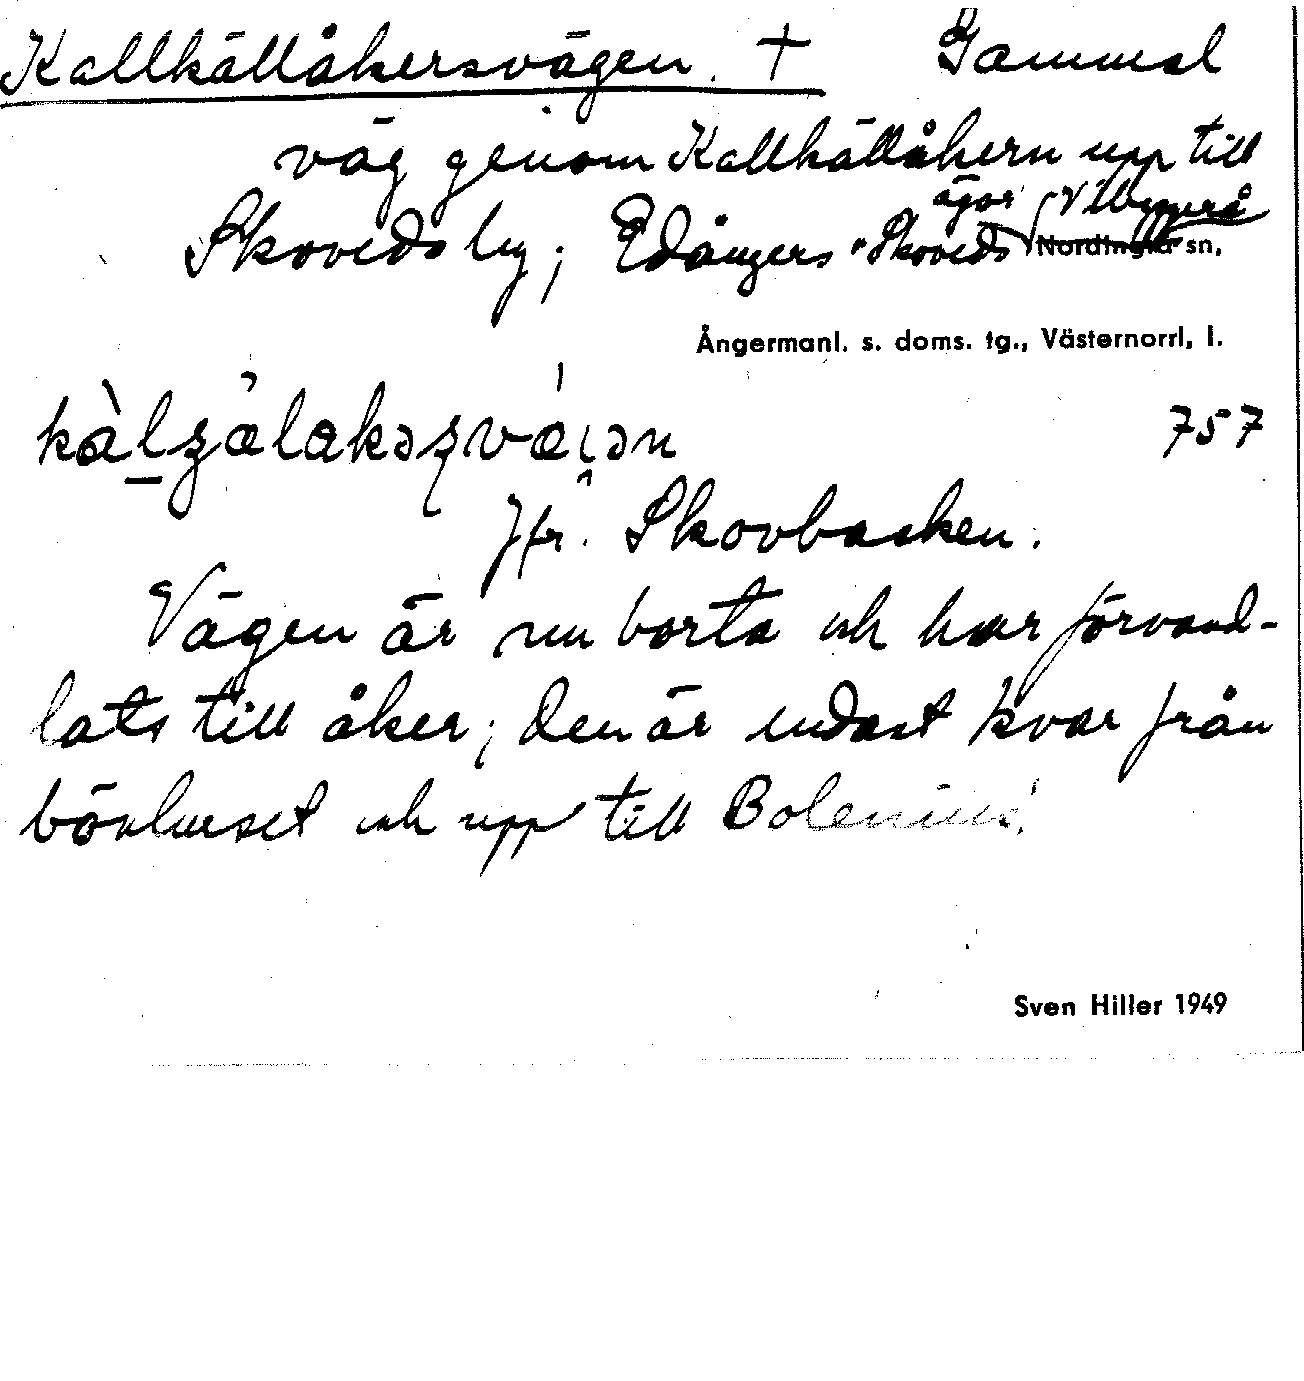 Kallkällåkersvägen. + Gammal
väg genom Kallkällåkern upp till
ägor Vibyggerå
Skoveds by; Edångers o. Skoveds Nordingrå sn,
Ångermanl. s. doms. tg., Västernorrl. l.
757
Jfr. Skovbacken.
Vägen är nu borta och har förvand-
lats till åker; den är endast kvar från
bönhuset och upp till Bolenius'.
Sven Hiller 1949